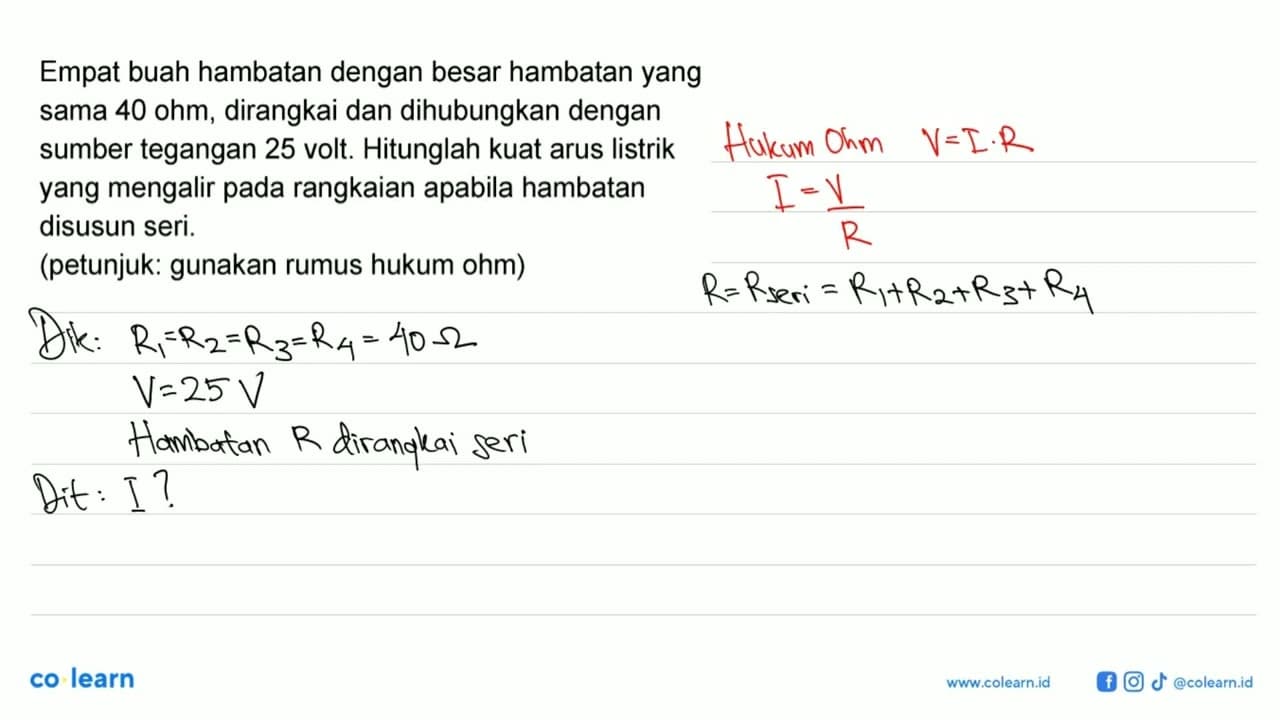 Empat buah hambatan dengan besar hambatan yang
sama 40 ohm, dirangkai dan dihubungkan dengan
sumber tegangan 25 volt. Hitunglah kuat arus listrik
yang mengalir pada rangkaian apabila hambatan
disusun seri.
(petunjuk: gunakan rumus hukum ohm)
Dik: R₁=R₂=R₃=R₄=40Ω
V=25 V
Hambatan R dirangkai seri
Dit: I?
Hukum Ohm V=I.R
I=V
R
R=Rseri=R₁+R₂+R₃+R₄
co learn
www.colearn.id
@colearn.id